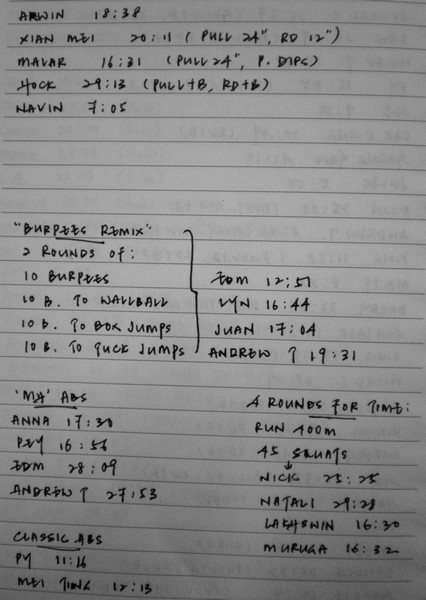 ARWIN 18:38
XIAN MEI 20:11 (PULL 24", RD 12")
MALAR 16:31 (PULL 24", P. DIPS)
HOCK 29:13 (PULL+B, RD+B)
NAVIN 7:05
"BURPEES REMIX"
2 ROUNDS OF:
10 BURPEES
10 B. TO WALLBALL
10 B. TO BOX JUMPS
10 B. TO TUCK JUMPS
EDM 12:51
LYN 16:44
JUAN 17:04
ANDREW T 19:31
'MA' ABS
ANNA 17:30
PEY 16:56
EDM 28:09
ANDREW T 27:53
CLASSIC ABS
PY 11:16
MEI TING 12:13
4 ROUNDS FOR TIME:
RUN 400m
45 SQUATS
NICK 25:25
NATALI 29:28
LAKHSWIN 16:30
MURUGA 16:32